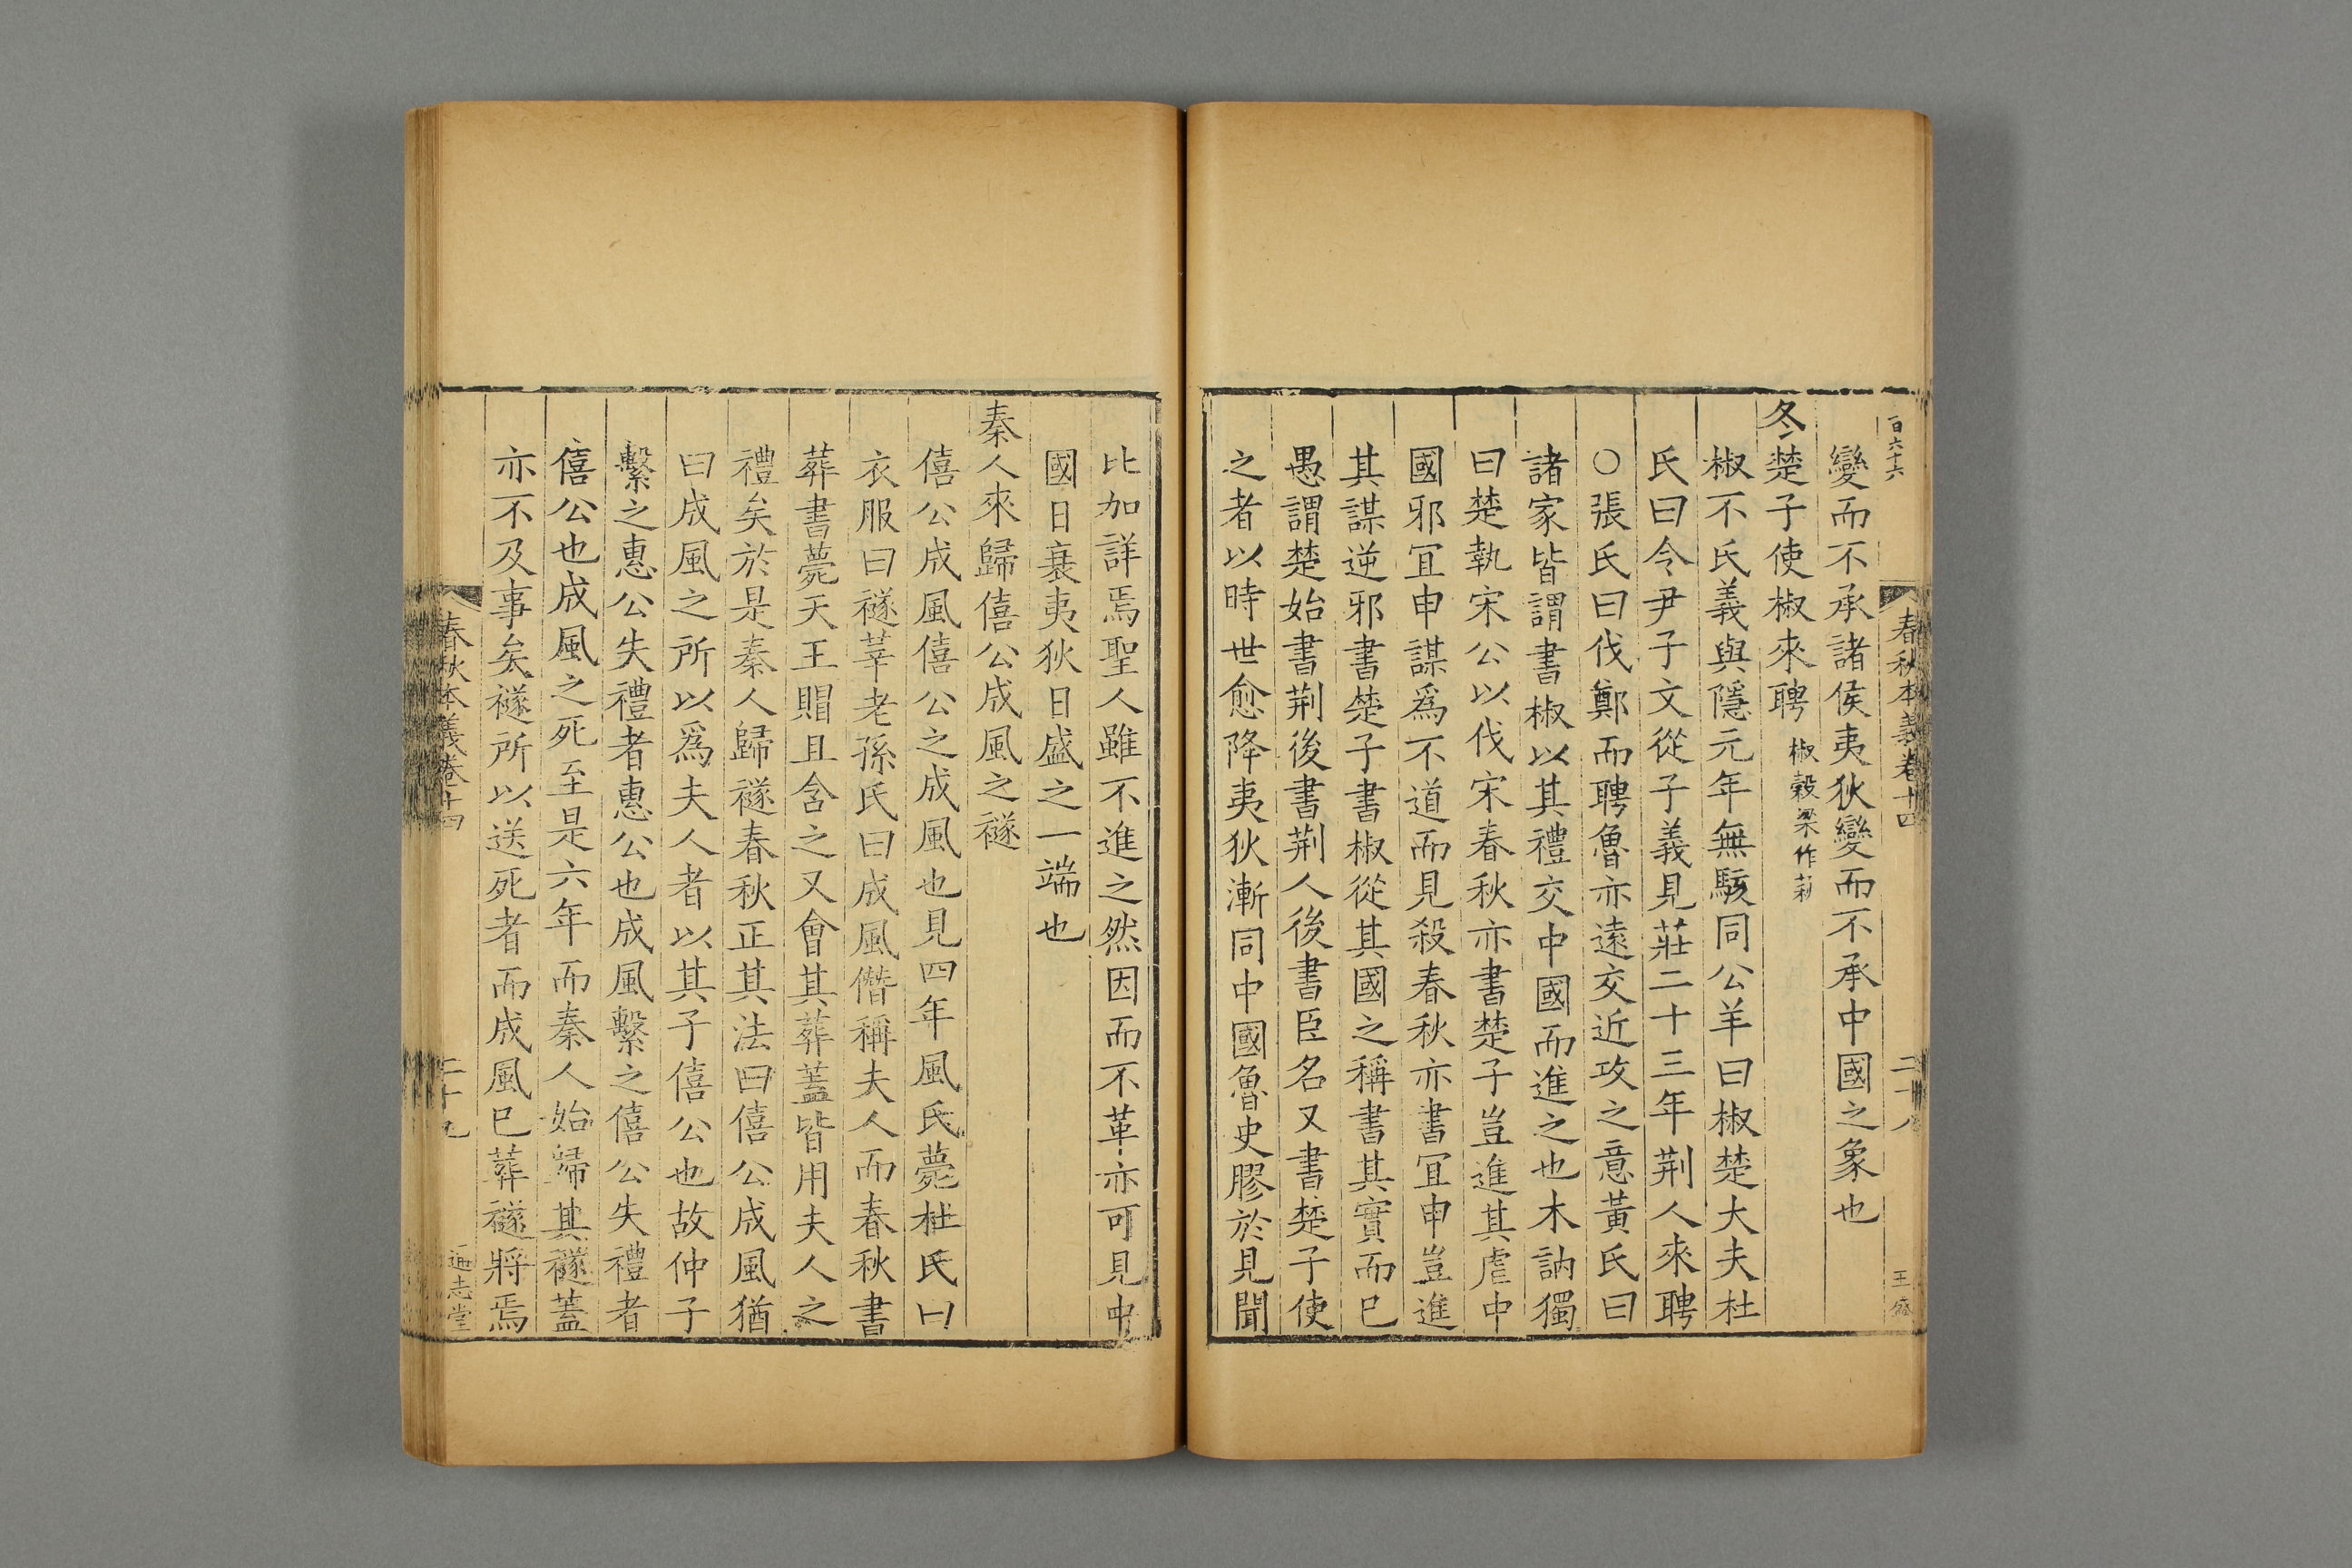 百六十六
春秋本義卷十四
二十八
王
變而不承諸侯夷狄變而不承中國之象也
冬楚子使椒來聘椒穀梁作萩
椒不氏義與隱元年無駭同公羊曰椒楚大夫杜
氏曰令尹子文從子義見莊二十三年荆人來聘
○張氏曰伐鄭而聘魯亦遠交近攻之意黃氏曰
諸家皆謂書椒以其禮交中國而進之也木訥獨
曰楚執宋公以伐宋春秋亦書楚子豈進其虐中
國邪宜申謀爲不道而見殺春秋亦書宜申豈進
其謀逆邪書楚子書椒從其國之稱書其實而已
愚謂楚始書荆後書荆人後書臣名又書楚子使
之者以時世愈降夷狄漸同中國魯史膠於見聞
比加詳焉聖人雖不進之然因而不革亦可見中
國日衰夷狄日盛之一端也
秦人來歸僖公成風之襚
僖公成風僖公之成風也見四年風氏薨杜氏曰
衣服曰襚莘老孫氏曰成風僭稱夫人而春秋書
葬書薨天王賵且含之又會其葬蓋皆用夫人之
禮矣於是秦人歸襚春秋正其法曰僖公成風猶
曰成風之所以爲夫人者以其子僖公也故仲子
繫之惠公失禮者惠公也成風繫之僖公失禮者
僖公也成風之死至是六年而秦人始歸其襚蓋
亦不及事矣襚所以送死者而成風已葬襚將焉
春秋本義卷十四
二十九
通志堂